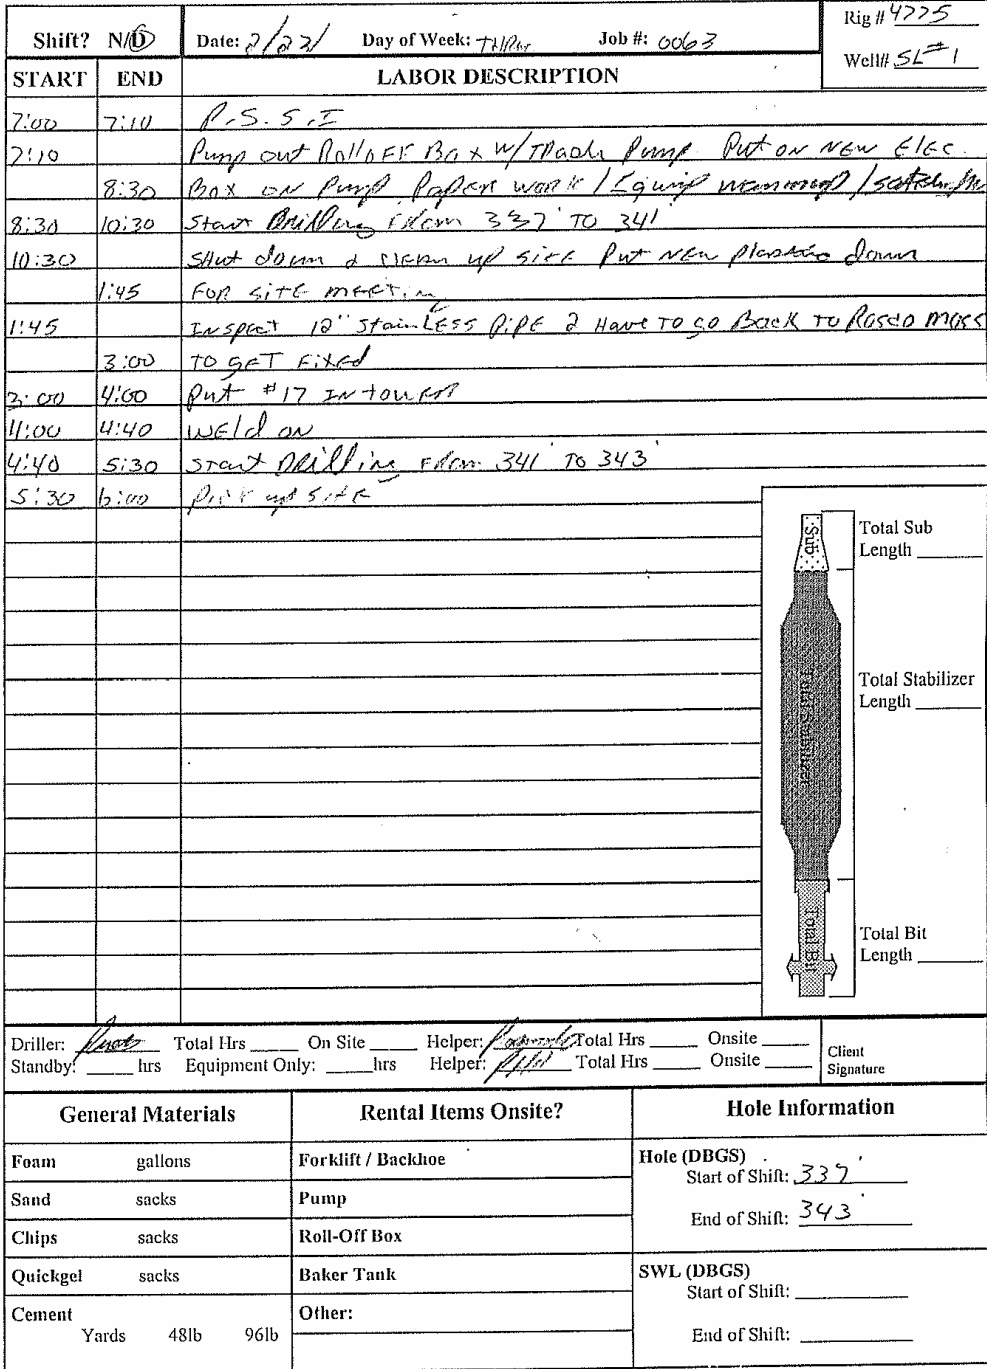 Shift? N/D Date: 2/23/ Day of Week: THUR Job #: 0063
Rig # 4775
Well# SL#1
START END LABOR DESCRIPTION
7:00 7:10 P.S.S.I
7:10 Pump out Rolloff Box W/TRash Pump Put on New Elec.
8:30 Box on Pump Paper work / Equip
8:30 10:30 Start Drilling From 337' TO 341'
10:30 Shut down & Clean up site Put New Plastic down
1:45 FOR SITE MEETing
1:45 Inspect 12" Stainless Pipe 2 Have TO GO Back TO Rosco Moss
3:00 TO GET FIXed
3:00 4:00 Put #17 IN tower
4:00 4:40 Weld on
4:40 5:30 Start Drilling From 341' TO 343'
5:30 6:00 Pick up Site
Sub
Total Sub
Length
Total Stabilizer
Total Stabilizer
Length
Total Bit
Total Bit
Length
Driller: Total Hrs On Site Helper: Total Hrs Onsite
Standby: hrs Equipment Only: hrs Helper: Total Hrs Onsite
Client
Signature
General Materials Rental Items Onsite? Hole Information
Foam gallons
Sand sacks
Chips sacks
Quickgel sacks
Cement
Yards 48lb 96lb
Forklift / Backhoe
Pump
Roll-Off Box
Baker Tank
Other:
Hole (DBGS)
Start of Shift: 337'
End of Shift: 343'
SWL (DBGS)
Start of Shift:
End of Shift: